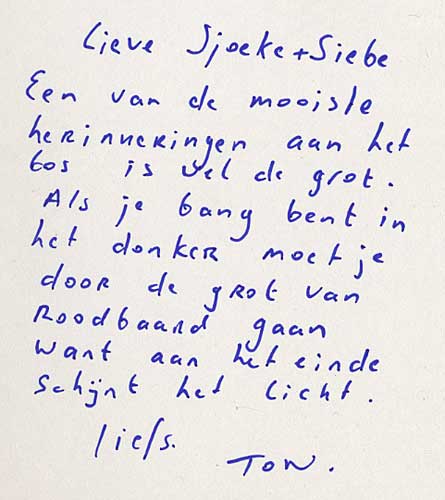 Lieve Sjoeke + Siebe
Een van de mooiste
herinneringen aan het
bos is wel de grot.
Als je bang bent in
het donker moet je
door de grot van
Roodbaard gaan
want aan het einde
schijnt het licht.
liefs.
Ton.